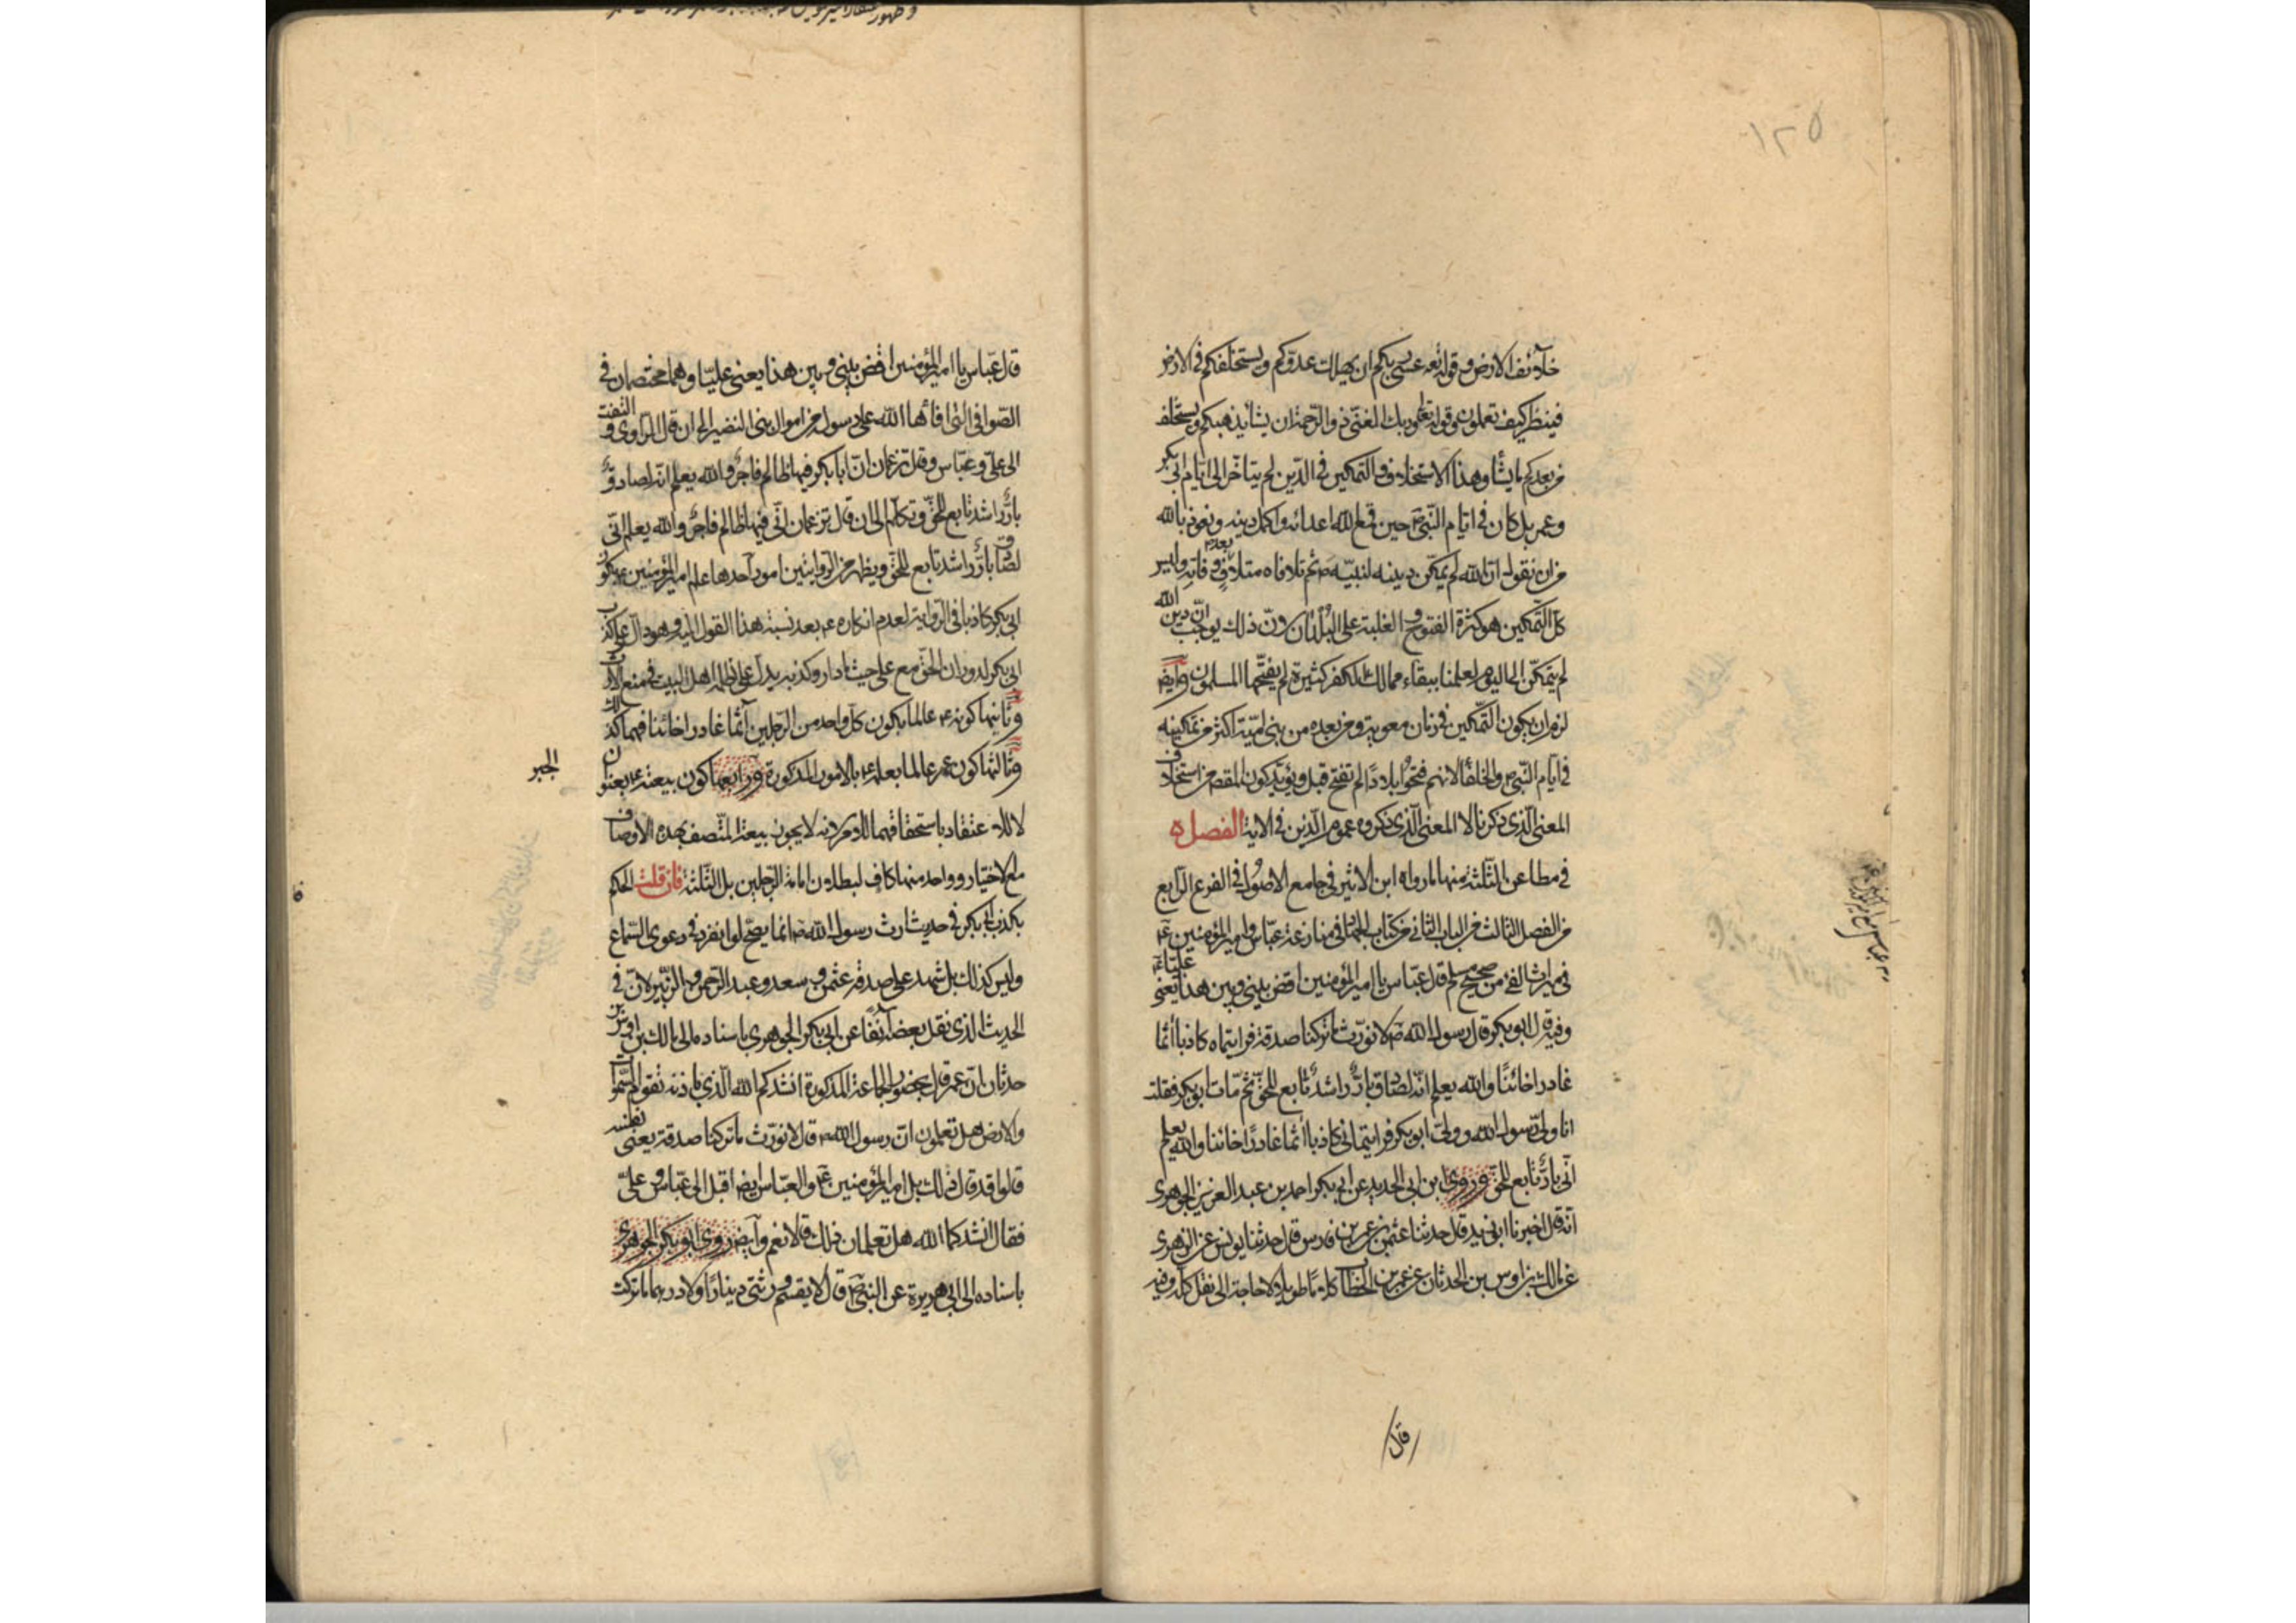 ١٢٥
خلائف الارض وقوله تعه عسى ربكم ان يهلك عدوّكم ويستخلفكم فى الارض
فينظر كيف تعملون وقوله تعلى وربك الغنىّ ذو الرّحمة ان يشأ يذهبكم ويستخلف
من بعدكم ما يشأ وهذا الاستخلاف والتمكين فى الدّين لم يتاخّر الى ايّام ابى بكر
وعمر بل كان فى ايّام النّبىّ ص حين قمع الله اعدائه واكمل دينه ونعوذ بالله
من ان نقول انّ الله لم يمكّن دينه لنبيّه ص ثم تلافاه متلاف بعد وفاته وليس
كلّ التمكين هو كثرة الفتوح والغلبة على البلدان لانّ ذلك يوجب انّ دين الله
لم يتمكّن الى اليوم لعلمنا ببقاء ممالك للكفر كثيرة لم يفتحها المسلمون وايضا
لزم ان يكون التّمكين فى زمان معوية ومن بعده من بنى اميّة اكثر من تمكينه
فى ايّام النّبى ص والخلفا لانهم فتحوا بلادًا لم تفتح قبل ويؤيّد كون المقصـ من استخلاف
المعنى الّذى ذكرنا لا المعنى الّذى ذكروه عموم الّذين فى الاية الفصل ٥
فى مطاعن الثّلثة منها ما رواه ابن الاثير فى جامع الاصول فى الفرع الرّابع
من الفصل الثالث من الباب الثانى من كتاب الجهاد فى منازعة عبّاس وامير المؤمنين ع
فى ميراث الفئ من صحيح مسلم قال عبّاس يا امير المؤمنين اقض بينى وبين هذا يعنى عليّا ع
وفيه قال ابو بكر قال رسول الله ص لا نورّث ما تركنا صدقة فرايتماه كاذبا آثما
غادرا خائنًا والله يعلم انّه لصادق بارٌّ راشدٌ تابع للحقّ ثم مات ابو بكر فقلت
انا ولىّ رسول الله وولىّ ابو بكر فرايتمانى كاذبا آثما غادرًا خائنا والله يعلم
انّى بارٌّ تابع للحقّ وروى ابن ابى الحديد عن ابى بكر احمد بن عبد العزيز الجوهرى
انّه قال اخبرنا ابو زيد قال حدثنا عثمن بن عمر بن فارس قال حدثنا يونس عن الزهرى
عن مالك بن اوس بن الحدثان عن عمر بن الخطاب كلامًا طويلا لا حاجة الى نقل كله وفيه
قال
قال عبّاس يا امير المؤمنين اقض بينى وبين هذا يعنى عليّا وهما يختصمان فى
الصّوافى الّتى افائها الله على رسوله من اموال بنى النضير الى ان قال الرّاوى والتفت
الى علىّ وعبّاس وقال تزعمان انّ ابا بكر فيها ظالم فاجرٌ والله يعلم انّه لصادقٌ
بارٌّ راشد تابع للحقّ وتكلّم الى ان قال تزعمان انّى فيها ظالم فاجرٌ والله يعلم انّى
لصادق بارٌّ راشد تابع للحقّ ويظهر من الرّوايتين امور احدها علم امير المؤمنين ع بكون
ابى بكر كاذبا فى الرّواية لعدم انكاره ع بعد نسبة هذا القول اليه وهو دالّ على كذب
ابى بكر لدوران الحقّ مع على حيث ما دار وكذبه يدلّ على ظلمه اهل البيت فى منع الارث
وثانيها كونه ع عالما بكون كلّ واحد من الرّجلين آثما غادرا خائنا فهما كذلك
وثالثها كون عمر عالما بعلمه ع بالامور المذكورة ورابعها كون بيعته ع بعنوان
الجبر
لا للاعتقاد باستحقاقهما للامر لانه لا يجوز بيعة المتّصف بهذه الاوصاف
مع الاختيار وواحد منها كاف لبطلان امامة الرّجلين بل الثّلثة فان قلت الحكم
بكذب ابى بكر فى حديث ارث رسول الله ص انما يصحّ لو انفرد فى دعوى السّماع
وليس كذلك بل شهد على صدقه عثمن وسعد وعبد الرّحمن والزّبير لانّ فى
الحديث الّذى نقل بعضه آنفًا عن ابى بكر الجوهرى باسناده الى مالك بن اوس بن
حدثان انّ عمر قال بحضور الجماعة المذكورة انشدكم الله الّذى باذنه تقوم السّموات
والارض هل تعلمون انّ رسول الله ص قال لا نورّث ما تركنا صدقة يعنى نفسه
قالوا قد قال ذلك بل امير المؤمنين ع والعبّاس ايضا اقبل الى عبّاس وعلىّ
فقال انشدكما الله هل تعلمان ذلك قالا نعم وايضـ روى ابو بكر الجوهرى
باسناده الى ابى هريرة عن النبىّ ص قال لا يقسم ورثتى دينارًا ولا درهما ما تركت